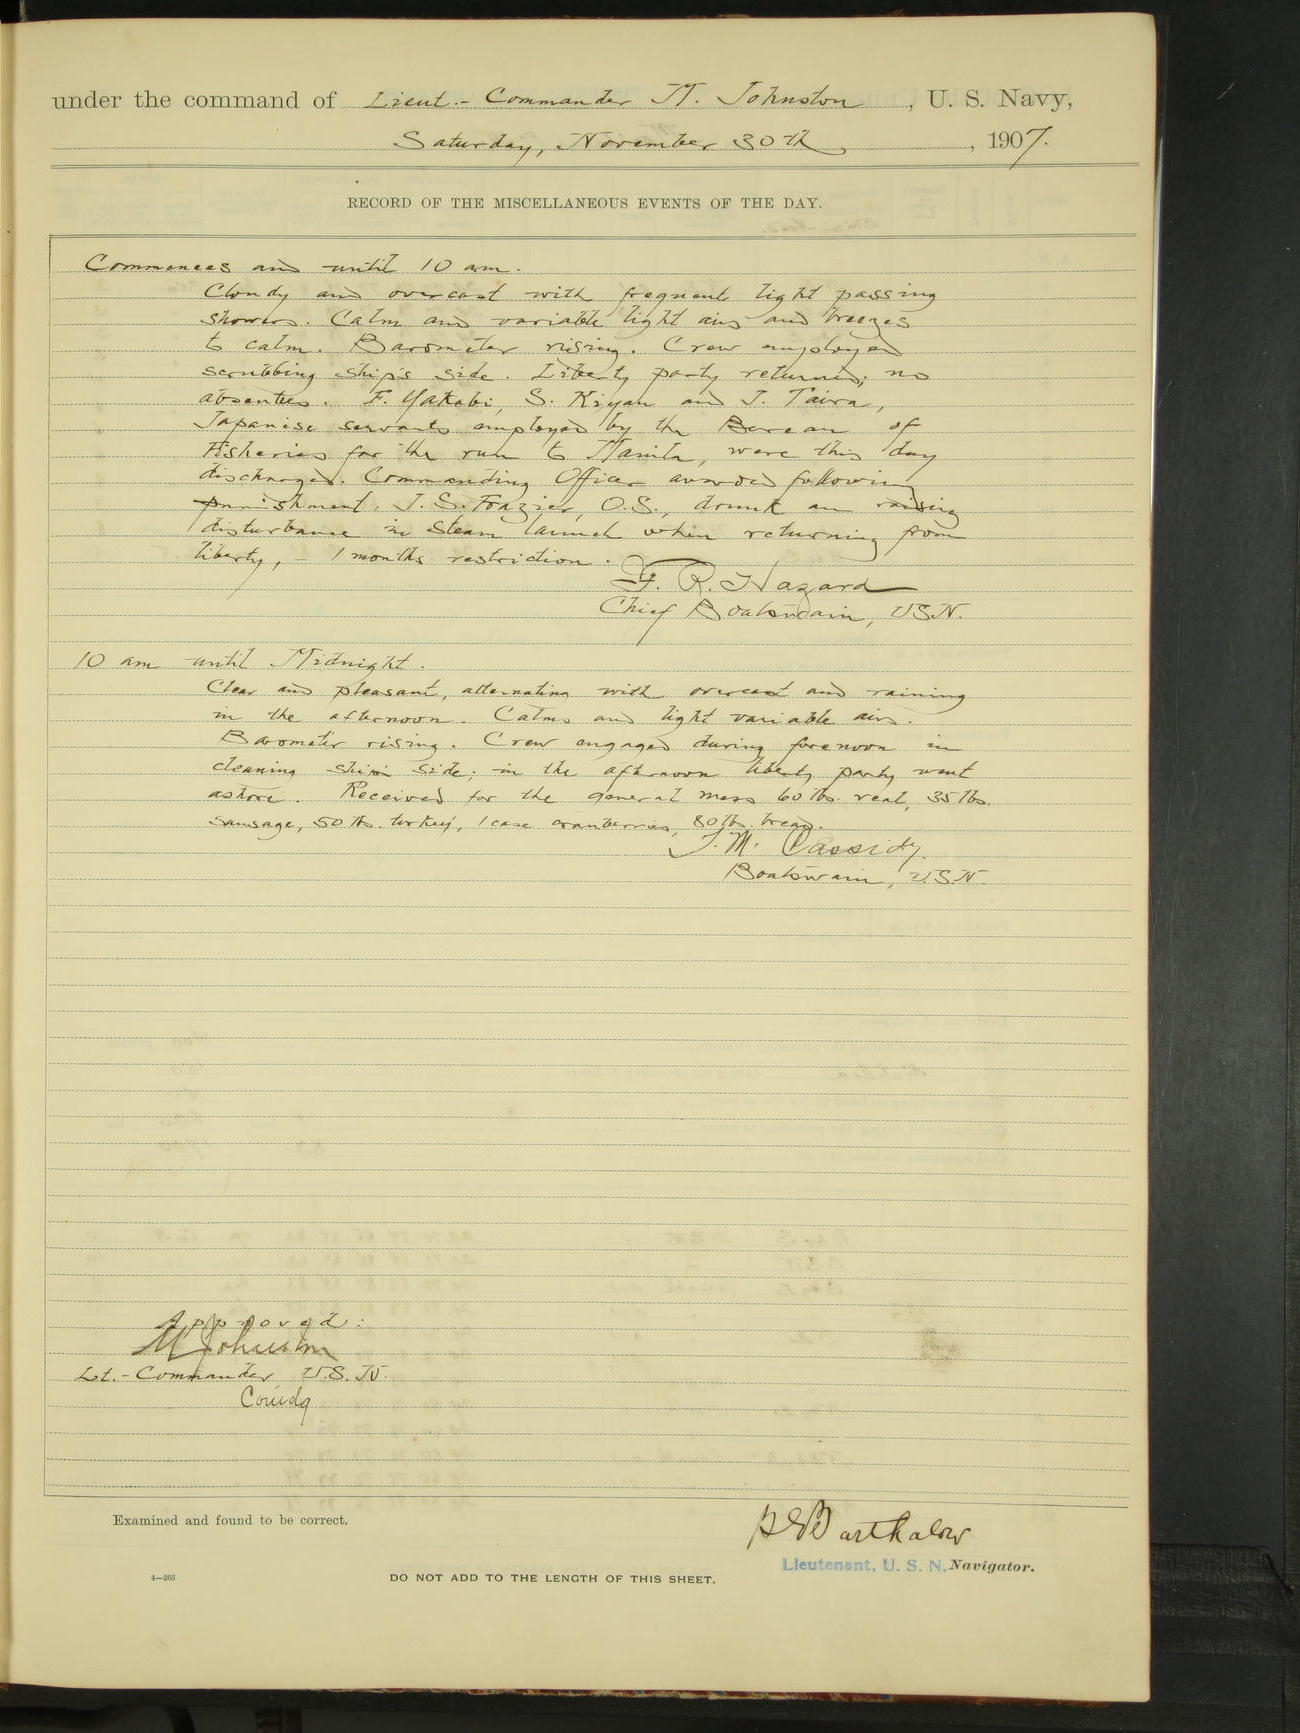 under the command of Lieut.- Commander M. Johnston, U. S. Navy,
Saturday, November 30th, 1907.
RECORD OF THE MISCELLANEOUS EVENTS OF THE DAY.
Commences and until 10 am.
Cloudy and overcast with frequent light passing
showers. Calm and variable light airs and breezes
to calm. Barometer rising. Crew employed
scrubbing ship's side. Liberty party returned; no
absentees. F. Yakabi, S. Kiyan and J. Taira,
Japanese servants employed by the Bureau of
Fisheries for the run to Manila, were this day
discharged. Commanding Officer awarded following
punishment: J. S. Frazier, O.S., drunk an raising
disturbance in steam launch when returning from
liberty, - 1 months restriction.
F. R. Hazard
Chief Boatswain, USN.
10 am until Midnight.
Clear and pleasant, alternating with overcast and raining
in the afternoon. Calms and light variable airs.
Barometer rising. Crew engaged during forenoon in
cleaning ship's side; in the afternoon liberty party went
ashore. Received for the general mess 60 lbs. veal, 35 lbs.
sausage, 50 lbs. turkey, 1 case cranberries, 80 lbs. bread.
J. M. Cassidy.
Boatswain, U.S.N.
Approved:
M Johnston
Lt.-Commander U.S.N.
Comdg
Examined and found to be correct.
Barthalow
Lieutenant, U. S. N. Navigator.
4—265
DO NOT ADD TO THE LENGTH OF THIS SHEET.